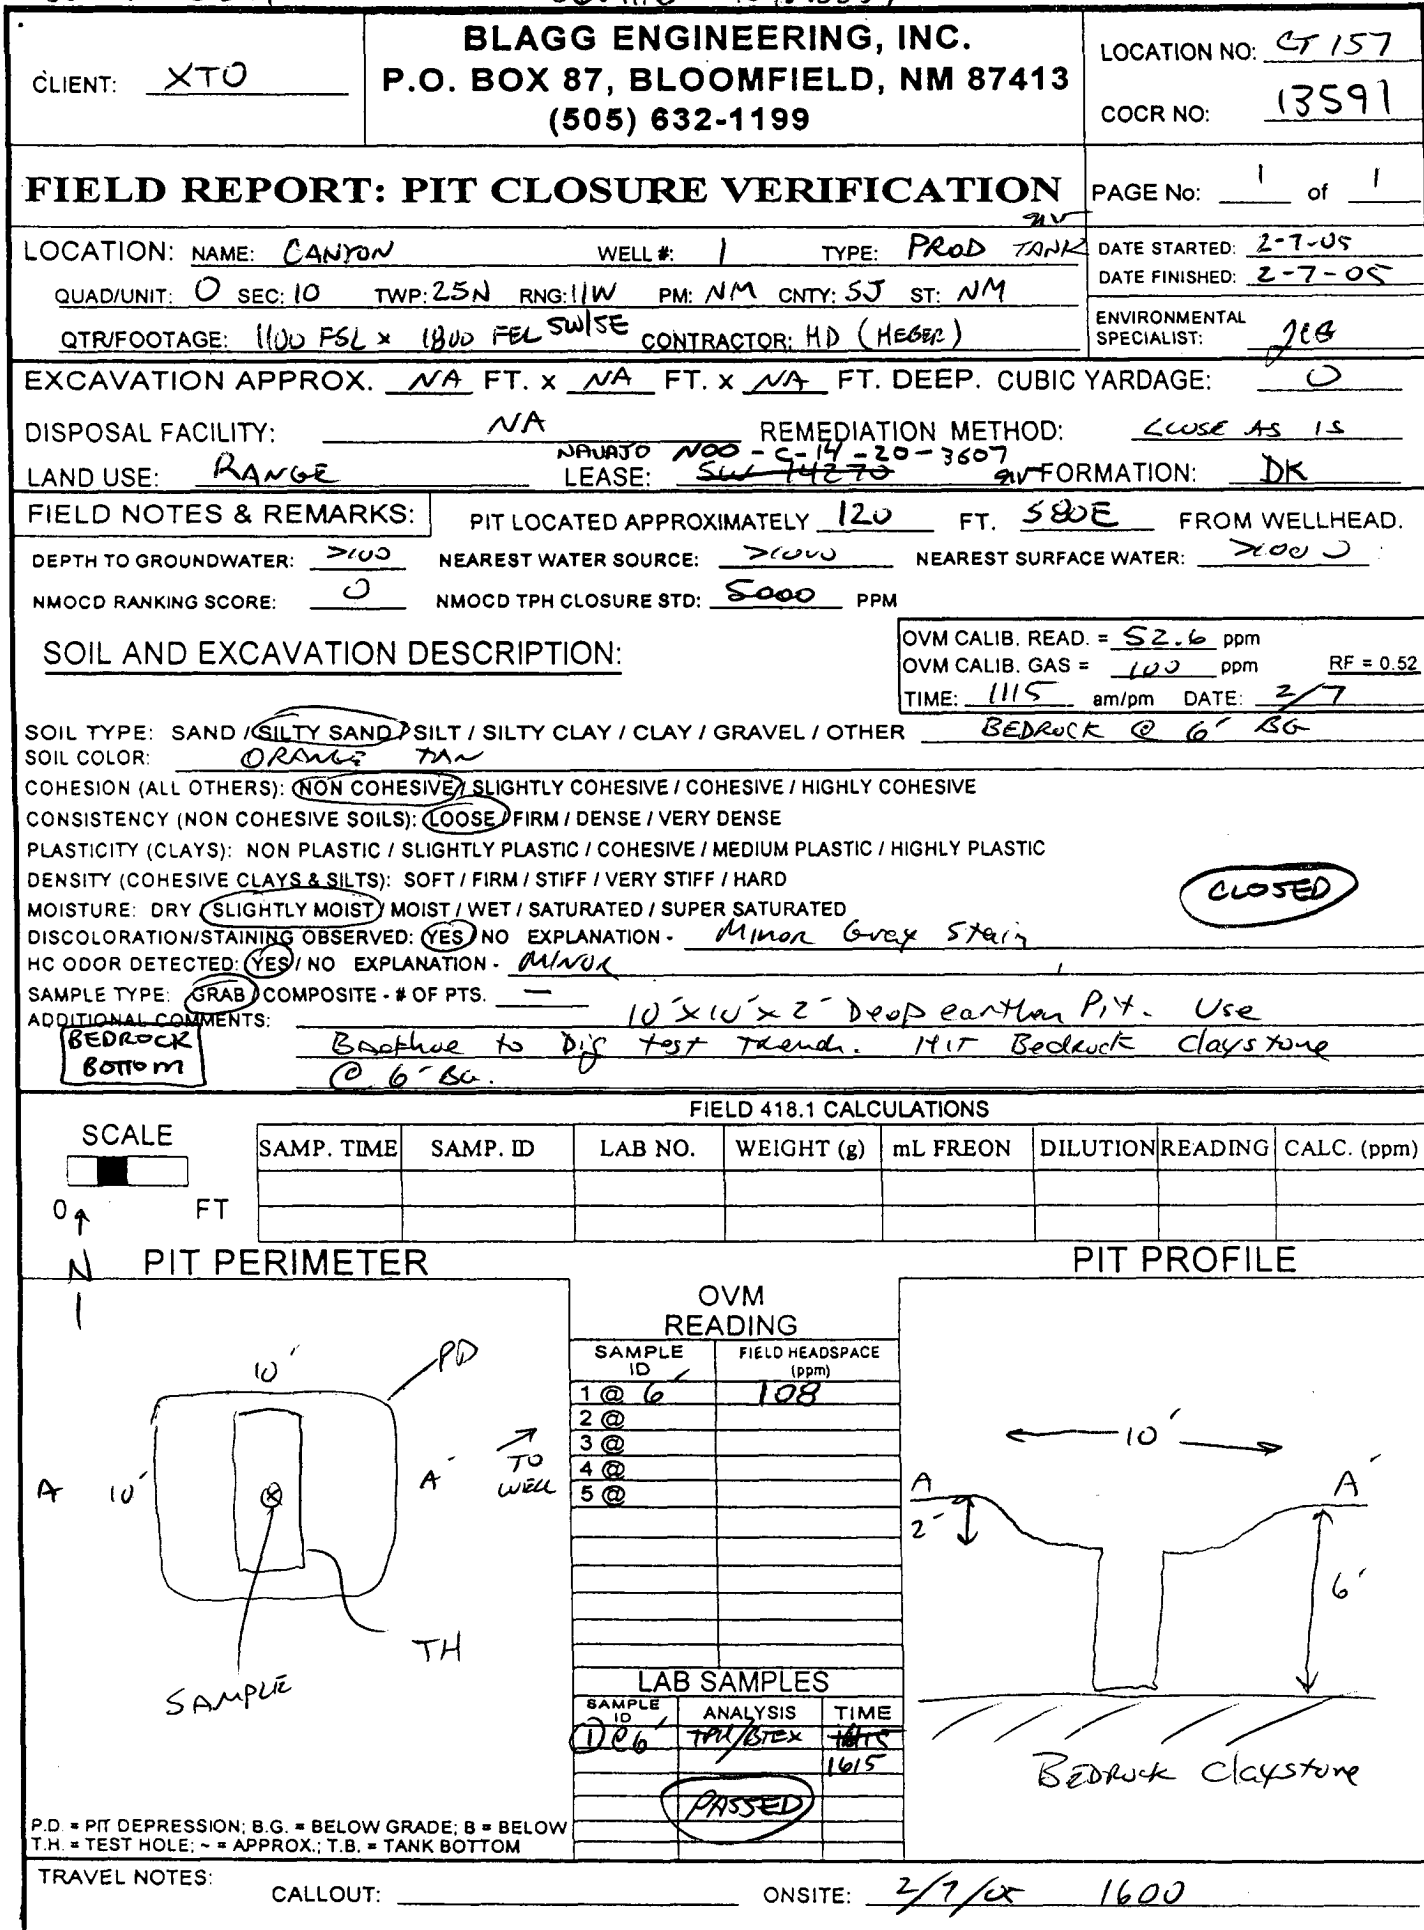 BLAGG ENGINEERING, INC.
P.O. BOX 87, BLOOMFIELD, NM 87413
(505) 632-1199
CLIENT: XTO
LOCATION NO: CT 157
COCR NO: 13591
FIELD REPORT: PIT CLOSURE VERIFICATION
PAGE No: 1 of 1
LOCATION: NAME: CANYON WELL #: 1 TYPE: PROD TANK
DATE STARTED: 2-7-05
DATE FINISHED: 2-7-05
QUAD/UNIT: O SEC: 10 TWP: 25N RNG: 11W PM: NM CNTY: SJ ST: NM
QTR/FOOTAGE: 1100 FSL x 1800 FEL SW/SE CONTRACTOR: HD (HEBER)
ENVIRONMENTAL SPECIALIST: JCB
EXCAVATION APPROX. NA FT. x NA FT. x NA FT. DEEP. CUBIC YARDAGE: 0
DISPOSAL FACILITY: NA REMEDIATION METHOD: CLOSE AS IS
NAVAJO NOO-C-14-20-3607
LAND USE: RANGE LEASE: FORMATION: DK
FIELD NOTES & REMARKS: PIT LOCATED APPROXIMATELY 120 FT. S80E FROM WELLHEAD.
DEPTH TO GROUNDWATER: >100 NEAREST WATER SOURCE: >1000 NEAREST SURFACE WATER: >1000
NMOCD RANKING SCORE: 0 NMOCD TPH CLOSURE STD: 5000 PPM
SOIL AND EXCAVATION DESCRIPTION:
OVM CALIB. READ. = 52.6 ppm
OVM CALIB. GAS = 100 ppm RF = 0.52
TIME: 1115 am/pm DATE: 2/7
SOIL TYPE: SAND / SILTY SAND / SILT / SILTY CLAY / CLAY / GRAVEL / OTHER BEDROCK @ 6' BG
SOIL COLOR: ORANGE TAN
COHESION (ALL OTHERS): NON COHESIVE / SLIGHTLY COHESIVE / COHESIVE / HIGHLY COHESIVE
CONSISTENCY (NON COHESIVE SOILS): LOOSE / FIRM / DENSE / VERY DENSE
PLASTICITY (CLAYS): NON PLASTIC / SLIGHTLY PLASTIC / COHESIVE / MEDIUM PLASTIC / HIGHLY PLASTIC
DENSITY (COHESIVE CLAYS & SILTS): SOFT / FIRM / STIFF / VERY STIFF / HARD
CLOSED
MOISTURE: DRY / SLIGHTLY MOIST / MOIST / WET / SATURATED / SUPER SATURATED
DISCOLORATION/STAINING OBSERVED: YES / NO EXPLANATION - Minor Gray Stain
HC ODOR DETECTED: YES / NO EXPLANATION - MINOR
SAMPLE TYPE: GRAB / COMPOSITE - # OF PTS. —
ADDITIONAL COMMENTS: 10'x10'x2' Deep earthen Pit. Use
Backhoe to Dig test Trench. HIT Bedrock Claystone
@ 6' BG.
BEDROCK
BOTTOM
FIELD 418.1 CALCULATIONS
SCALE
0 FT
SAMP. TIME SAMP. ID LAB NO. WEIGHT (g) mL FREON DILUTION READING CALC. (ppm)
N
PIT PERIMETER
PIT PROFILE
OVM
READING
SAMPLE ID FIELD HEADSPACE (ppm)
1 @ 6' 108
2 @
3 @
4 @
5 @
10'
PD
A 10'
A'
TO
WELL
TH
SAMPLE
10'
A
A'
2'
6'
BEDROCK Claystone
LAB SAMPLES
SAMPLE ID ANALYSIS TIME
1 @ 6' TPH/BTEX
1615
PASSED
P.D. = PIT DEPRESSION; B.G. = BELOW GRADE; B = BELOW
T.H. = TEST HOLE; ~ = APPROX.; T.B. = TANK BOTTOM
TRAVEL NOTES:
CALLOUT: ONSITE: 2/7/05 1600